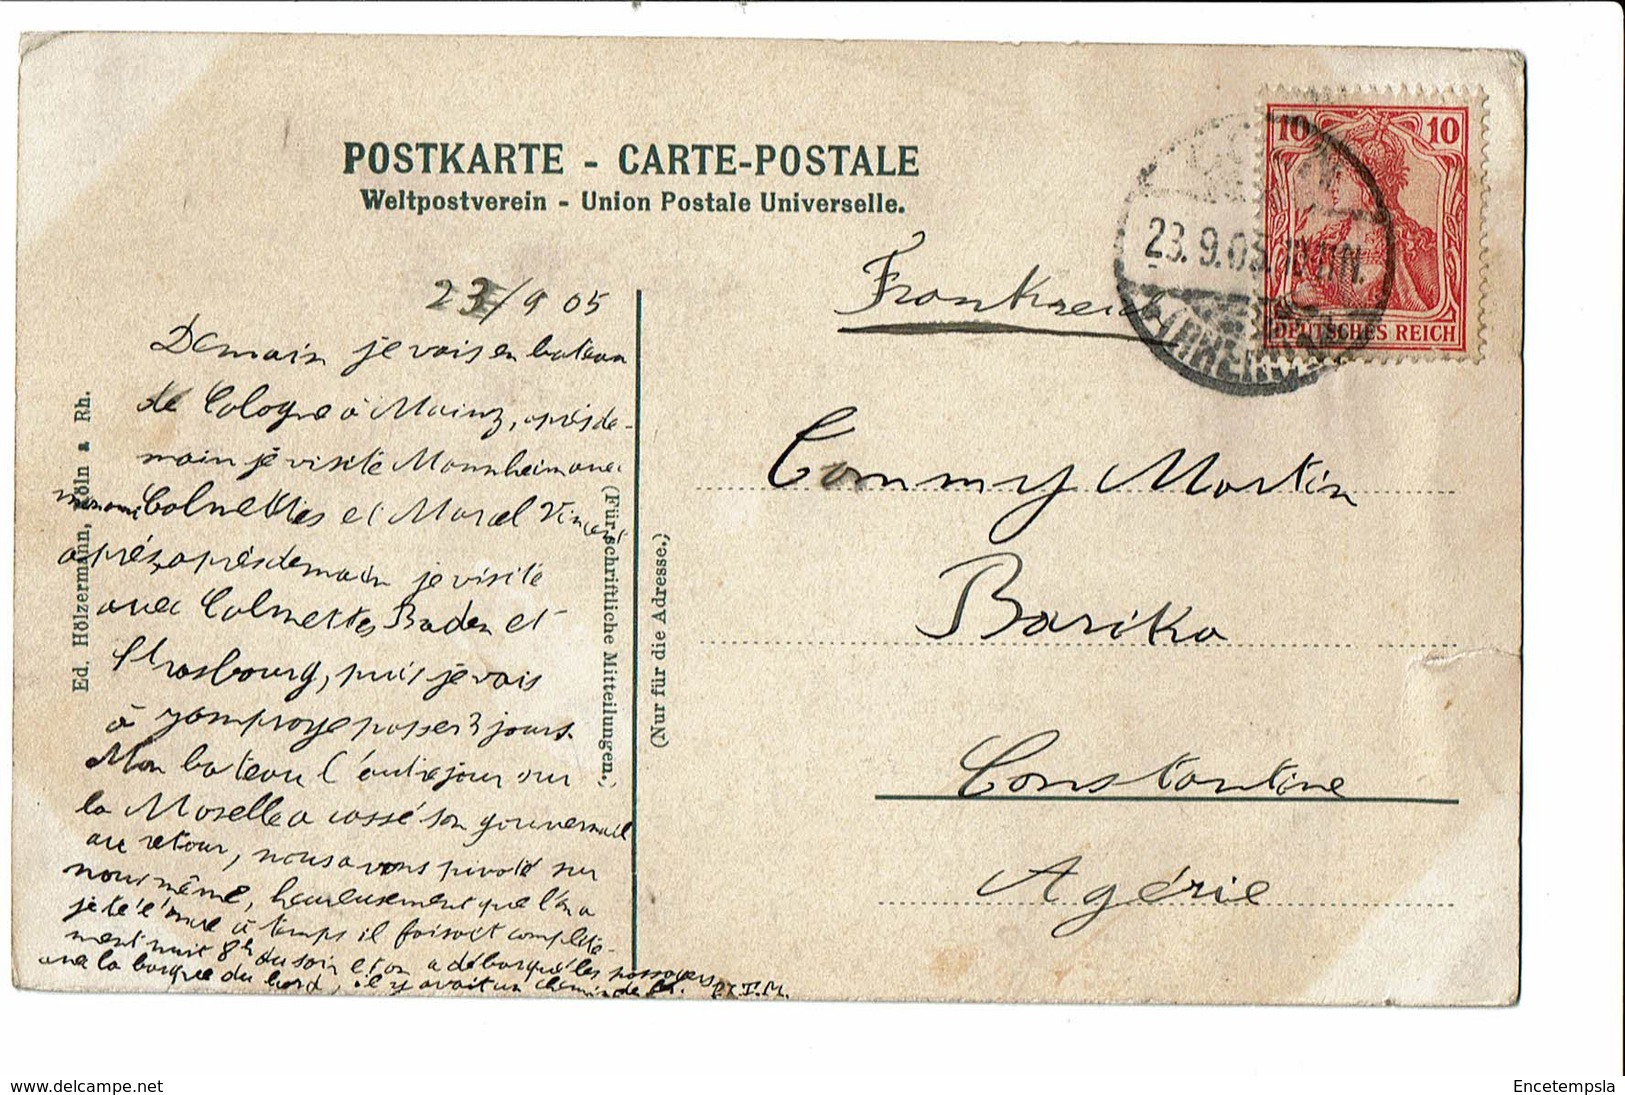 POSTKARTE - CARTE-POSTALE
Weltpostverein - Union Postale Universelle.
10 10
DEUTSCHES REICH
23.9.05.
Frankreich
23/9 05
Demain je vais en bateau
de Cologne à Mainz, après de-
main je visite Mannheim avec
Colnettes et Marcel Vincent
après, après demain je visite
avec Colnettes Baden et
Strasbourg, puis je vais
à passer 3 jours.
Mon bateau l'autre jour sur
la Moselle a cassé son gouvernail
au retour, nous avons pivoté sur
nous même, heureusement que l'on a
jeté l'ancre à temps il faisait complète-
ment nuit 8h du soir et on a débarqué les passagers
avec la barque du bord, il y avait un chemin de
Ed. Hölzermann, Köln a Rh.
(Für schriftliche Mitteilungen.)
(Nur für die Adresse.)
Commy Martin
Barika
Constantine
Agérie
www.delcampe.net
Encetempsla